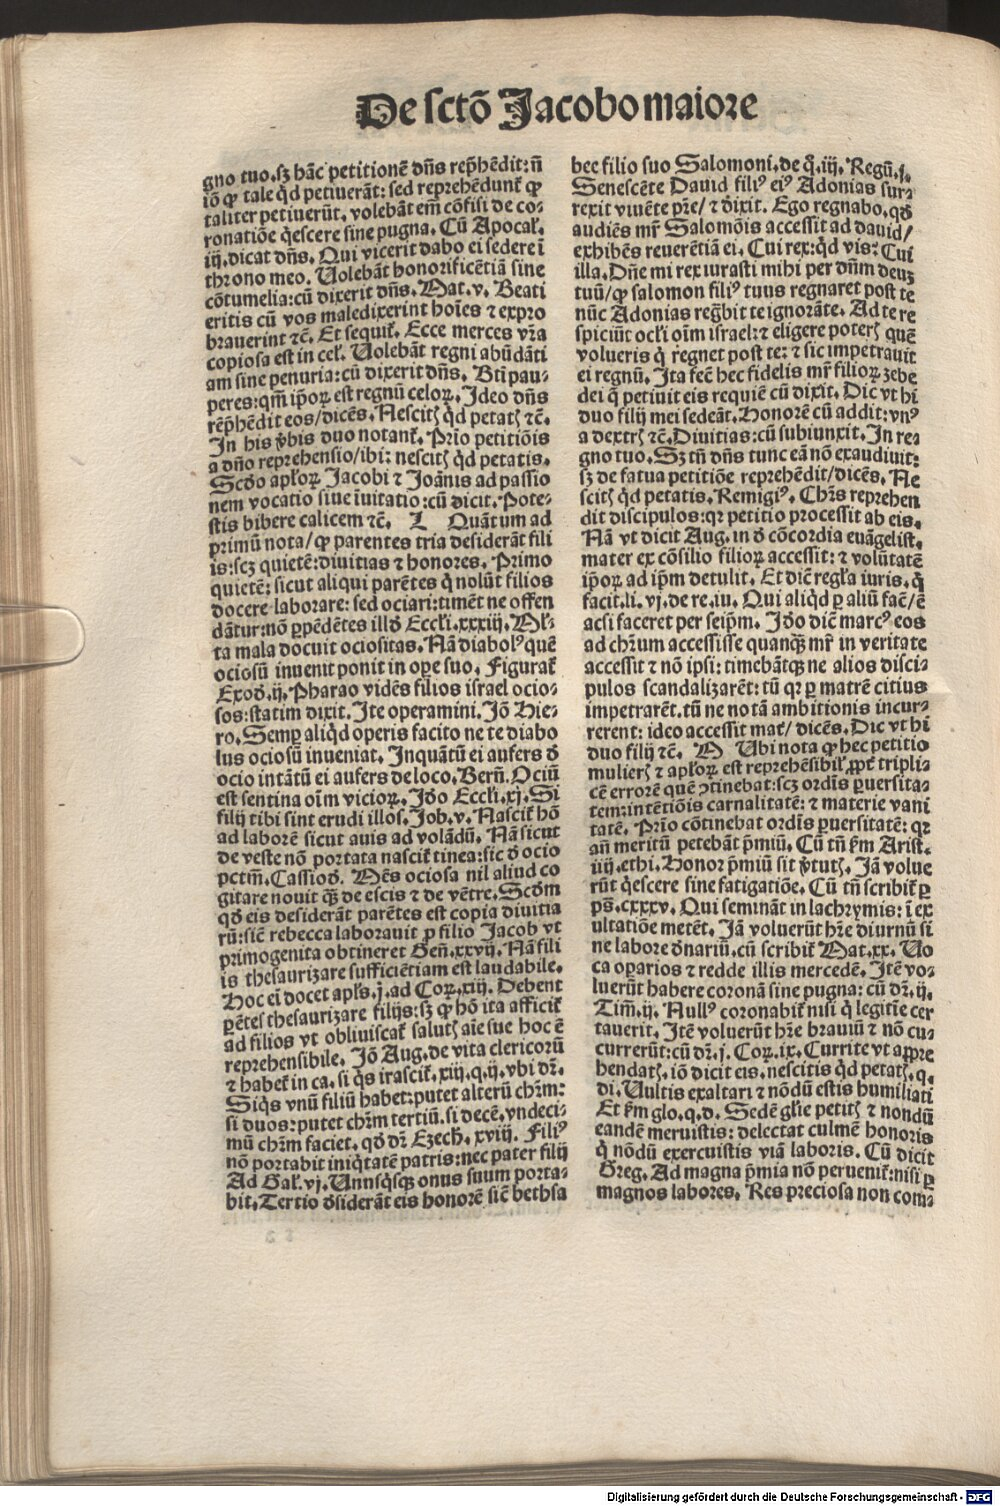 De sctō Jacobo maiore
gno tuo. sꝫ hāc petitionē dn̄s rep̄hēdit: n̄
iō ꝙ tale qd̄ petiuerāt: sed reprehēdunt̄ ꝙ
taliter petiuerūt. volebāt em̄ cōfisi de co⸗
ronatiōe q̄escere sine pugna. Cū Apocal̄.
iij. dicat dn̄s. Qui vicerit dabo ei sedere ī
throno meo. Uolebāt honorificētiā sine
cōtumelia: cū dixerit dn̄s. Mat. v. Beati
eritis cū vos maledixerint hoīes ⁊ expro
brauerint ⁊c̄. Et sequit̄. Ecce merces vr̄a
copiosa est in cel̄. Uolebāt regni abūdāti
am sine penuria: cū dixerit dn̄s. Bt̄i pau⸗
peres: qm̄ ip̄oꝝ est regnū celoꝝ. Ideo dn̄s
rep̄hēdit eos/ dicēs. Nescitꝭ qd̄ petatꝭ ⁊c̄.
In his v̄bis duo notant̄. Prīo petitiōis
a dn̄o reprehensio/ ibi: nescitꝭ qd̄ petatis.
Scd̄o apl̄oꝝ Jacobi ⁊ Joānis ad passio
nem vocatio siue īuitatio: cū dicit. Pote⸗
stis bibere calicem ⁊c̄. L Quātum ad
primū nota/ ꝙ parentes tria desiderāt fili
is: scꝫ quietē: diuitias ⁊ honores. Primo
quietē: sicut aliqui parētes q̄ nolūt filios
docere laborare: sed ociari: timēt ne offen
dātur: nō ꝑpēdētes illd̄ Eccl̄i. xxxiij. Ml̄⸗
ta mala docuit ociositas. Nā diabolꝰ quē
ociosū inuenit ponit in oꝑe suo. Figurat̄
Exod̄. ij. Pharao vidēs filios israel ocio⸗
sos: statim dixit. Ite operamini. Iō Hie⸗
ro. Semꝑ aliqd̄ operis facito ne te diabo
lus ociosū inueniat. Inquātū ei aufers d̄
ocio intātū ei aufers de loco. Bern̄. Ociū
est sentina oīm vicioꝝ. Id̄o Eccl̄i. xj. Si
filij tibi sint erudi illos. Job. v. Nascit̄ hō
ad laborē sicut auis ad volādū. Nā sicut
de veste nō portata nascit̄ tinea: sic d̄ ocio
pctm̄. Cassiod̄. Mēs ociosa nil aliud co
gitare nouit qꝫ de escis ⁊ de vētre. Scd̄m
qd̄ eis desiderāt parētes est copia diuitia
rū: sic̄ rebecca laborauit ꝓ filio Jacob vt
primogenita obtineret Gen̄. xxvij. Nā fili
is thesaurizare sufficiētiam est laudabile.
Hoc ei docet apl̄s. j. ad Coꝝ. xij. Debent
ꝑētes thesaurizare filijs: sꝫ ꝙ hō ita afficit̄
ad filios vt obliuiscat̄ salutꝭ aīe sue hoc ē
reprehensibile. Iō Aug. de vita clericorū
⁊ habet̄ in ca. si q̄s irascit̄. xiij. q. ij. vbi dr̄.
Siq̄s vnū filiū habet: putet alterū chr̄m:
si duos: putet chr̄m tertiū. si decē. vndeci⸗
mū chr̄m faciet. qd̄ dr̄ Ezech̄. xviij. Filiꝰ
nō portabit iniq̄tatē patris: nec pater filij
Ad Gal̄. vj. Unusq̄sqꝫ onus suum porta⸗
bit. Tertio d̄siderāt eis honorē sic̄ bethsa
bee filio suo Salomoni. de q̄. iij. Regū. j.
Senescēte Dauid filiꝰ eiꝰ Adonias sur⸗
rexit viuēte pr̄e/ ⁊ dixit. Ego regnabo. qd̄
audiēs mr̄ Salomōis accessit ad dauid/
exhibēs reuerētiā ei. Cui rex: qd̄ vis? Cui
illa. Dn̄e mi rex iurasti mihi per dn̄m deuꝫ
tuū/ ꝙ salomon filiꝰ tuus regnaret post te
nūc Adonias regn̄bit te ignorāte. Ad te re
spiciūt ocl̄i oīm israel: ⁊ eligere poterꝭ quē
volueris q̄ regnet post te: ⁊ sic impetrauit
ei regnū. Ita fec̄ hec fidelis mr̄ filioꝝ zebe
dei q̄ petiuit eis requiē cū dixit. Dic vt hi
duo filij mei sedeāt. Honorē cū addit: vnꝰ
a dextrꝭ ⁊c̄. Diuitias: cū subiunxit. In re⸗
gno tuo. Sꝫ tn̄ dn̄s tunc eā nō exaudiuit:
sꝫ de fatua petitiōe reprehēdit/ dicēs. Ne
scitꝭ qd̄ petatis. Remigiꝰ. Chr̄s reprehen
dit discipulos: qꝛ petitio processit ab eis.
Nā vt dicit Aug. in d̄ cōcordia euāgelist.
mater ex cōsilio filioꝝ accessit: ⁊ volūtatē
ip̄oꝝ ad ip̄m detulit. Et dic̄ regl̄a iuris. q̄
facit. li. vj. de re. iu. Qui aliqd̄ ꝑ aliū fac̄/ ē
acsi faceret per seip̄m. Id̄o dic̄ marcꝰ eos
ad chr̄um accessisse quanqꝫ mr̄ in veritate
accessit ⁊ nō ipsi: timebātqꝫ ne alios disci⸗
pulos scandalizarēt: tū qꝛ ꝑ matrē citius
impetrarēt. tū ne notā ambitionis incur⸗
rerent: ideo accessit mat̄/ dicēs. Dic vt hi
duo filij ⁊c̄. M Ubi nota ꝙ hec petitio
mulierꝭ ⁊ apl̄oꝝ est reprehēsibil̄. ꝓpt̄ tripli⸗
cē errorē quē ꝯtinebat: scꝫ ordīs ꝑuersita⸗
tem: intētiōis carnalitatē: ⁊ materie vani
tatē. Prīo cōtinebat ordīs ꝑuersitatē: qꝛ
an̄ meritū petebāt p̄miū. Cū tn̄ ẜm Arist.
iiij. ethi. Honor p̄miū sit v̄tutꝭ. Jā volue
rūt q̄escere sine fatigatiōe. Cū tn̄ scribit̄ ꝑ
ps̄. cxxxv. Qui semināt in lachrymis: ī ex
ultatiōe metēt. Jā voluerūt hr̄e diurnū si
ne labore d̄nariū. cū scribit̄ Mat. xx. Uo
ca oꝑarios ⁊ redde illis mercedē. Itē vo⸗
luerūt habere coronā sine pugna: cū dr̄. ij.
Tim̄. ij. Nullꝰ coronabit̄ nisi q̄ legitīe cer
tauerit. Itē voluerūt hr̄e brauiū ⁊ nō cu⸗
currerūt: cū dr̄. j. Coꝝ. ix. Currite vt appre
hendatꝭ. iō dicit eis. nescitis qd̄ petatꝭ. q.
di. Uultis exaltari ⁊ nōdū estis humiliati
Et ẜm glo. q. d. Sedē gl̄ie petitꝭ ⁊ nondū
eandē meruistis: delectat culmē honoris
q̄ nōdū exercuistis viā laboris. Cū dicit
Greg. Ad magna p̄mia nō peruenit̄: nisi ꝑ
magnos labores. Res preciosa non com⸗
Digitalisierung gefördert durch die Deutsche Forschungsgemeinschaft - DFG